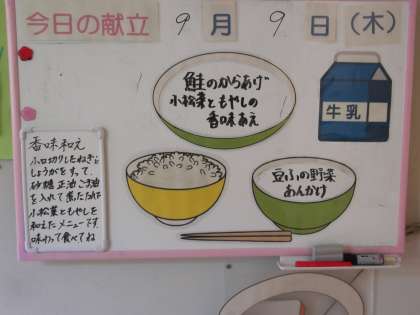 今日の献立 9月9日(木)
鮭のからあげ
小松菜ともやしの
香味あえ
牛乳
豆ふの野菜
あんかけ
香味和え
小口切りしたねぎと
しょうがをすって、
砂糖 正油 ごま油
を入れて煮たたれで
小松菜ともやしを
和えたメニューです
味わって食べてね